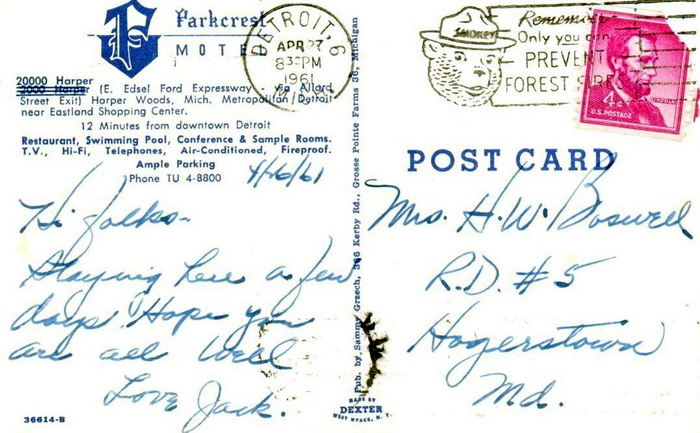 Parkcrest
MOTEL
20000 Harper
2000 Harper (E. Edsel Ford Expressway via Allard
Street Exit) Harper Woods, Mich. Metropolitan Detroit
near Eastland Shopping Center.
12 Minutes from downtown Detroit
Restaurant, Swimming Pool, Conference & Sample Rooms.
T.V., Hi-Fi, Telephones, Air-Conditioned, Fireproof.
Ample Parking
Phone TU 4-8800
Hi folks-
Staying here a few
days. Hope you
are all well
Love Jack.
36614-B
Pub. by Sammy Grzech, 366 Kerby Rd., Grosse Pointe Farms 36, Michigan
MADE BY
DEXTER
WEST NYACK, N. Y.
DETROIT, 6
APR 27
8 PM
1961
SMOKEY
Remember
Only you can
PREVENT
FOREST FIRES
4¢
LINCOLN
U.S. POSTAGE
POST CARD
Mrs. H. W. Boswell
R.D. #5
Hagerstown
Md.